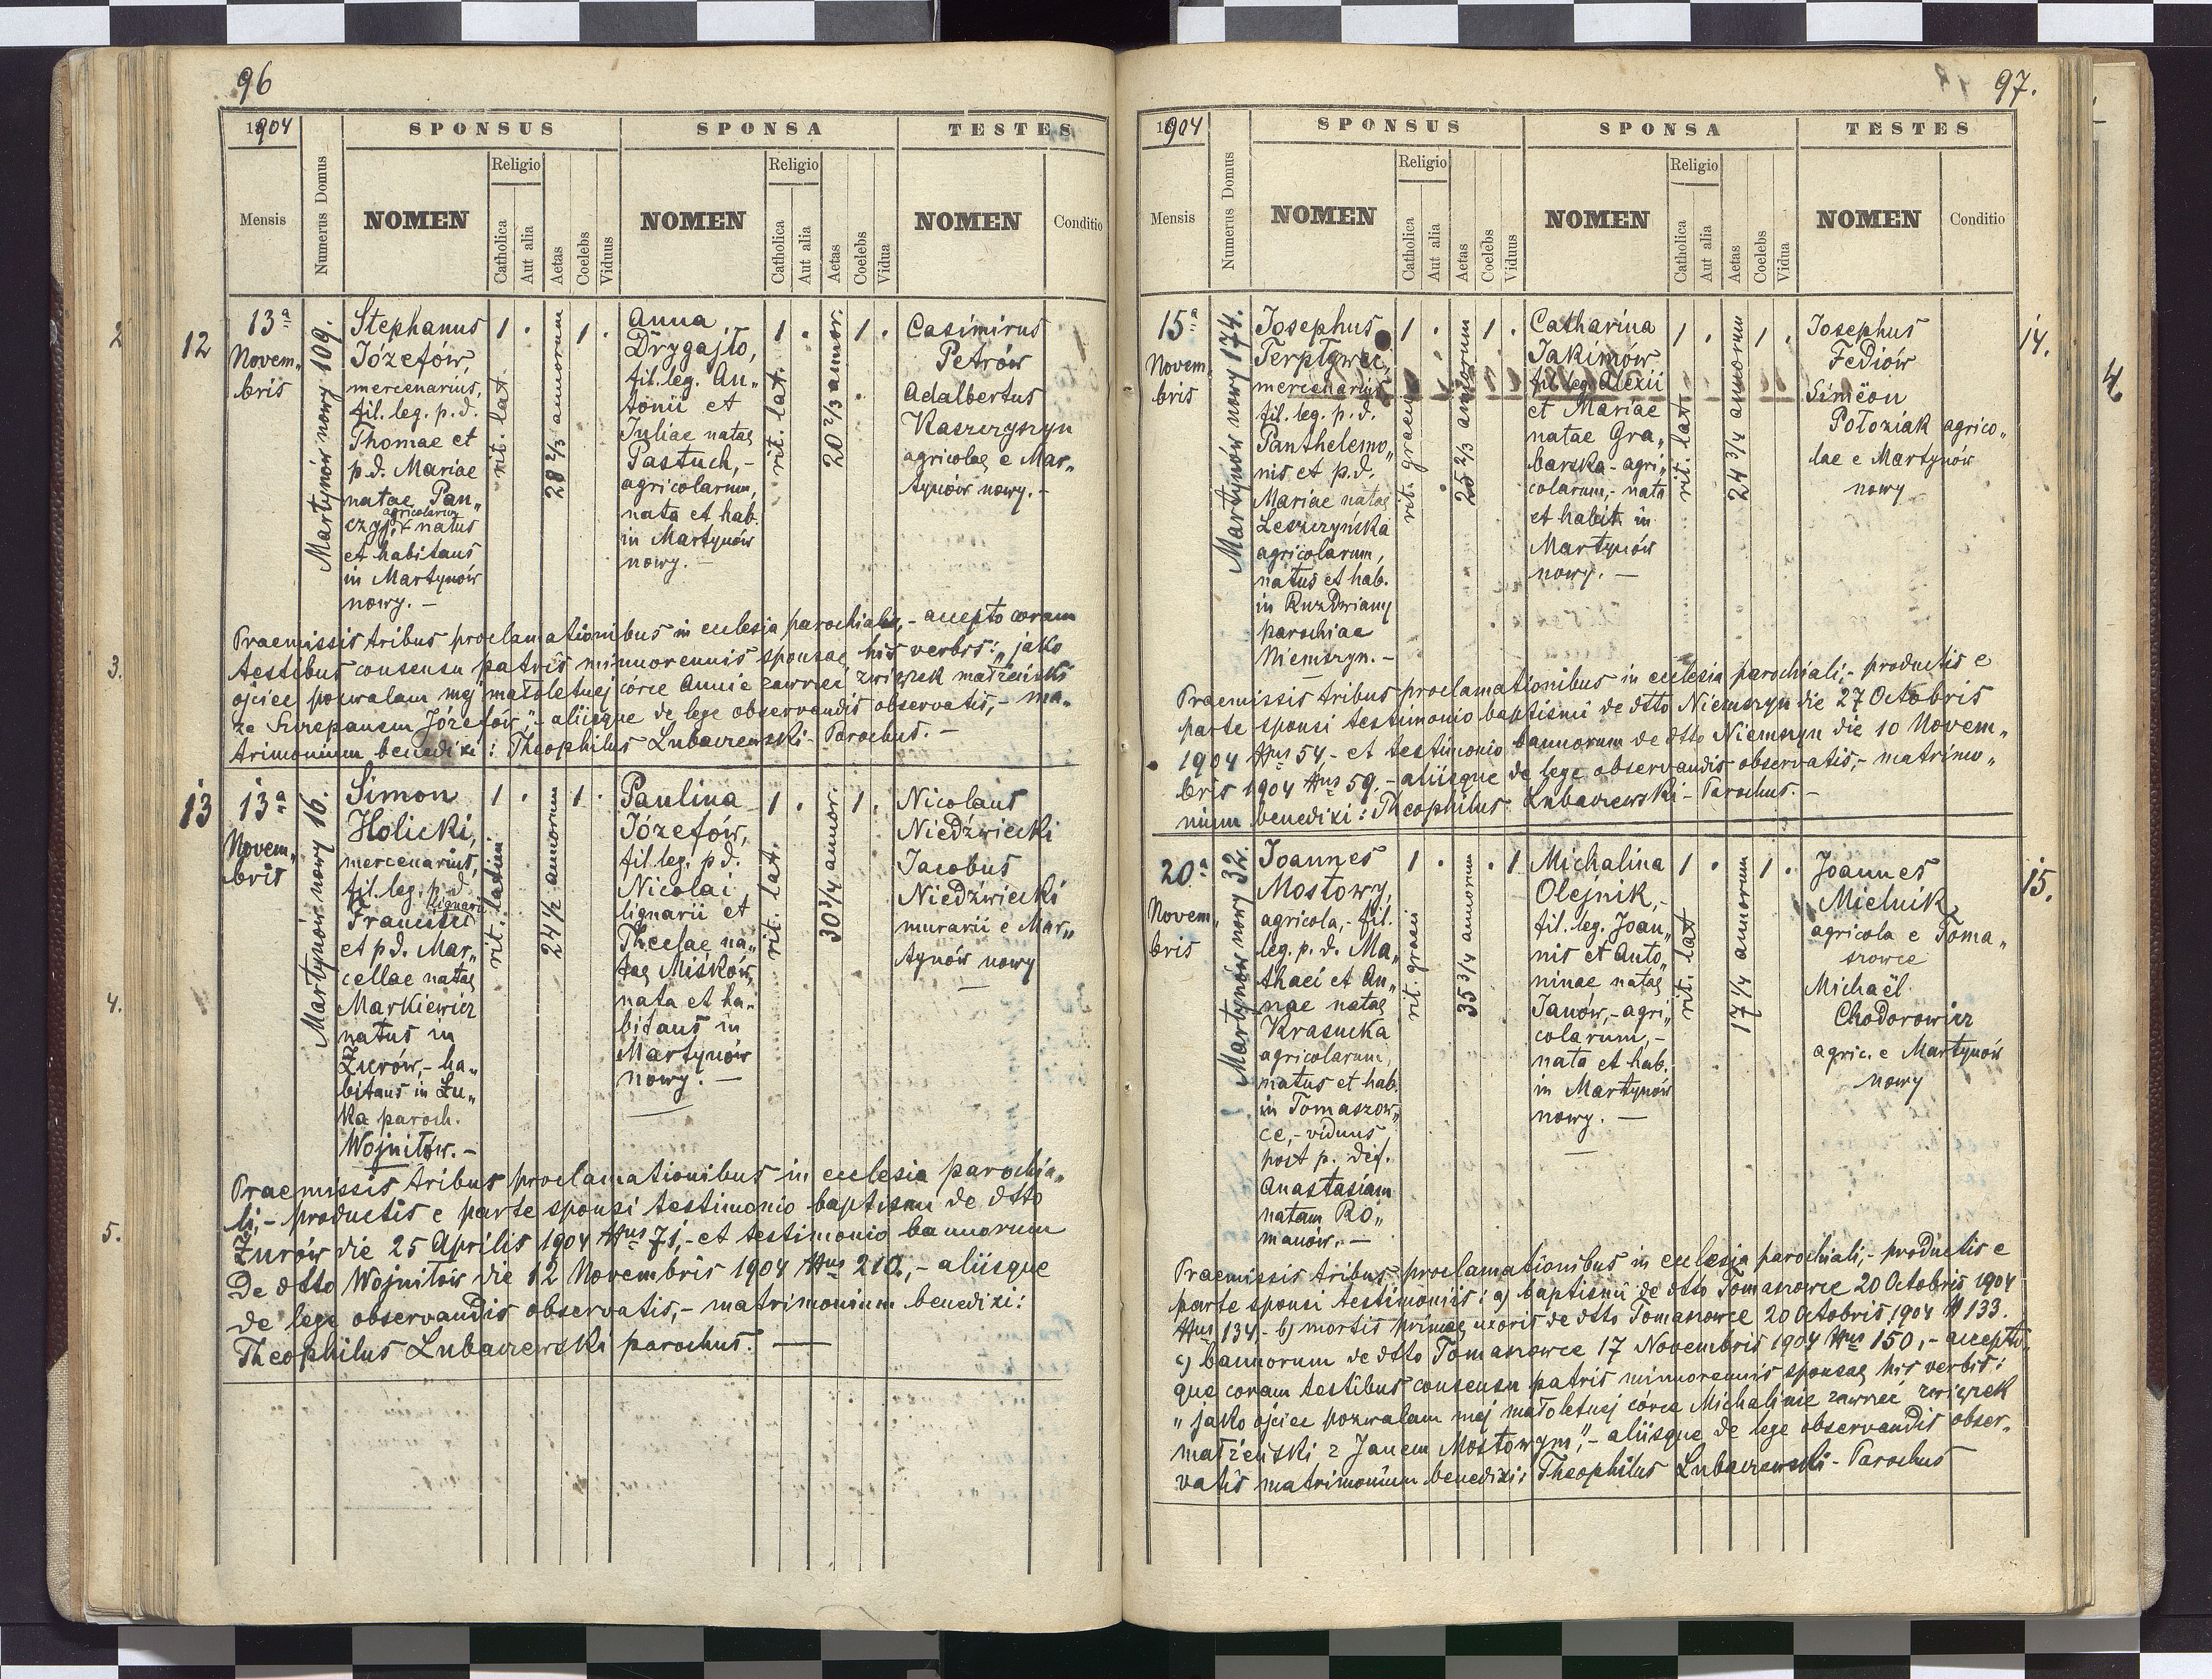 96
1904
SPONSUS
SPONSA
TESTES
Mensis
Numerus Domus
NOMEN
Religio
Catholica
Aut alia
Aetas
Coelebs
Viduus
NOMEN
Religio
Catholica
Aut alia
Aetas
Coelebs
Vidua
NOMEN
Conditio
12
13ª
Novem„
bris
Martynów nowy 109.
Stephanus
Józefów,
mercenarius,
fil. leg. p.d.
Thomae et
p.d. Mariae
natae Pan„
agricolarum
czyj, + natus
et habitans
in Martynów
nowy. –
1 .
rit. lat.
28 2/3 annorum
1 .
Anna
Drygajło,
fil. leg. An„
tonii et
Juliae natae
Pastuch, –
agricolarum,
nata et hab.
in Martynów
nowy. –
1 .
rit. lat.
20 2/3 annor.
1 .
Casimirus
Petrów
Adalbertus
Kaszczyszyn
agricolae e Mar„
tynów nowy. –
Praemissis tribus proclamationibus in ecclesia parochiali, – accepto coram
testibus consensu patris minorennis sponsae his verbis: „jako
ojciec pozwalam mej małoletniej córce Annie zawrzeć związek małżeński
ze Szczepanem Józefów", – aliisque de lege observandis observatis, – ma„
trimonium benedixi: Theophilus Lubaczewski – Parochus. –
13
13ª
Novem„
bris
Martynów nowy 16.
Simon
Holicki,
mercenarius,
fil. leg. p.d.
lignarii
Francisci
et p.d. Mar„
cellae natae
Markiewicz
natus in
Żurów, – ha„
bitans in Łu„
ka paroch.
Wojniłów. –
1 .
rit. latini
24 1/2 annorum
1 .
Paulina
Józefów,
fil. leg. p.d.
Nicolai
lignarii et
Theclae na„
tae Miśków,
nata et ha„
bitans in
Martynów
nowy. –
1 .
rit. lat.
30 3/4 annor.
1 .
Nicolaus
Niedźwiecki
Jacobus
Niedźwiecki
murarii e Mar„
tynów nowy
Praemissis tribus proclamationibus in ecclesia parochia„
li, – productis e parte sponsi testimonio baptismi de dtto
Żurów die 25 Aprilis 1904 Nus 71, – et testimonio bannorum
de dtto Wojniłów die 12 Novembris 1904 Nus 210, – aliisque
de lege observandis observatis, – matrimonium benedixi:
Theophilus Lubaczewski parochus. –
2
3.
4.
5.
97.
1904
SPONSUS
SPONSA
TESTES
Mensis
Numerus Domus
NOMEN
Religio
Catholica
Aut alia
Aetas
Coelebs
Viduus
NOMEN
Religio
Catholica
Aut alia
Aetas
Coelebs
Vidua
NOMEN
Conditio
15ª
Novem„
bris
Martynów nowy 174.
Josephus
mercenarius,
fil. leg. p.d.
Panthelemo„
nis et p.d.
Mariae natae
Leszczyńska
agricolarum,
natus et hab.
in Ruzdwiany
parochiae
Niemszyn. –
1 .
rit. graeci
25 2/3 annorum
1 .
Catharina
Jakimów
fil. leg. Alexii
et Mariae
natae Gra„
barska – agri„
colarum, – nata
et habit. in
Martynów
nowy. –
1 .
rit. lat.
24 3/4 annorum
1 .
Josephus
Fediów
Simëon
Połoziak agrico„
lae e Martynów
nowy
14.
4.
Praemissis tribus proclamationibus in ecclesia parochiali, – productis e
parte sponsi testimonio baptismi de dtto Niemszyn die 27 Octobris
1904 Nus 54, – et testimonio bannorum de dtto Niemszyn die 10 Novem„
bris 1904 Nus 59. – aliisque de lege observandis observatis, – matrimo„
nium benedixi: Theophilus Lubaczewski – Parochus. –
20ª
Novem„
bris
Martynów nowy 32.
Joannes
Mostowy,
agricola, – fil.
leg. p.d. Ma„
thaei et An„
nae natae
Krasucka
agricolarum,
natus et hab.
in Tomaszow„
ce, – viduus
post p. def.
Anastasiam
natam Ro„
manów. –
1 .
rit. graeci
35 3/4 annorum
. 1
Michalina
Olejnik, –
fil. leg. Joan„
nis et Anto„
ninae natae
Janów, – agri„
colarum, –
nata et hab.
in Martynów
nowy. –
1 .
rit. lat
17 1/4 annorum
1 .
Joannes
Mielnik
agricola e Toma„
szowce
Michaël
Chodorowicz
agric. e Martynów
nowy
15.
Praemissis tribus proclamationibus in ecclesia parochiali, – productis e
parte sponsi testimoniis: a) baptismi de dtto Tomaszowce 20 Octobris 1904
Nus 134, – b) mortis primae uxoris de dtto Tomaszowce 20 Octobris 1904 N 133.
c) bannorum de dtto Tomaszowce 17 Novembris 1904 Nus 150, – accepto„
que coram testibus consensu patris minorennis sponsae his verbis:
„jako ojciec pozwalam mej małoletniej córce Michalinie zawrzeć związek
małżeński z Janem Mostowym", – aliisque de lege observandis obser„
vatis matrimonium benedixi: Theophilus Lubaczewski – Parochus